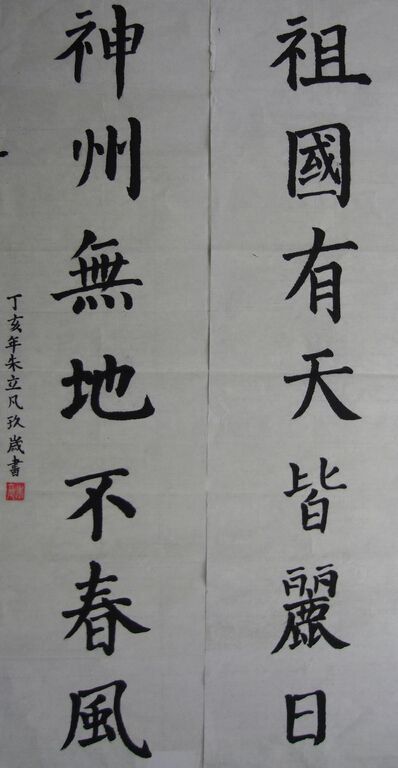 祖國有天皆麗日
神州無地不春風
丁亥年朱立凡玖歲書